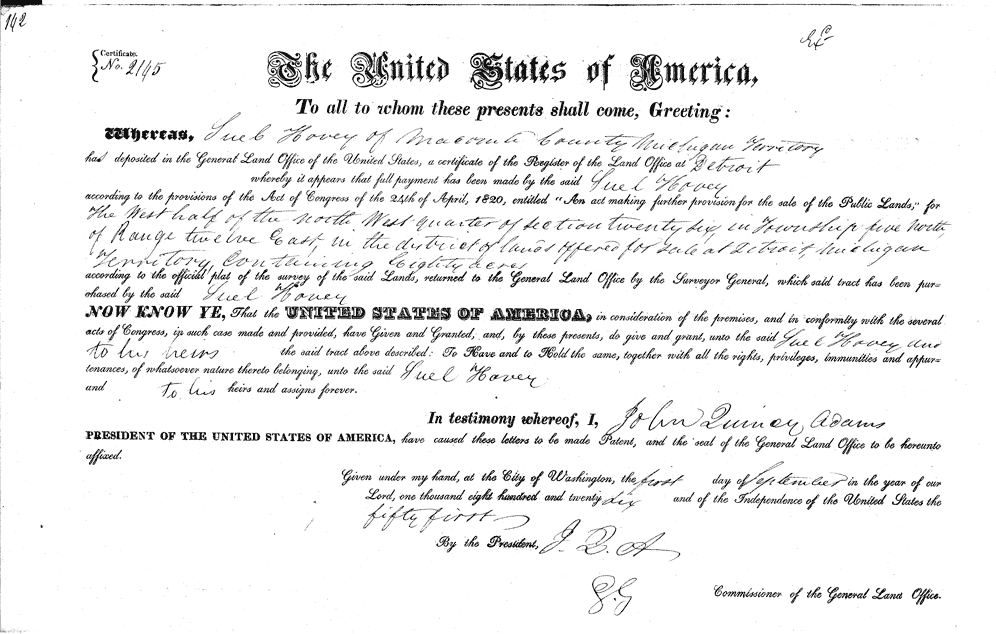 142
Ex^d
Certificate.
No. 2145
The United States of America,
To all to whom these presents shall come, Greeting:
Whereas, Suel Hovey of Macomb County Michigan Territory
has deposited in the General Land Office of the United States, a certificate of the Register of the Land Office at Detroit
whereby it appears that full payment has been made by the said Suel Hovey
according to the provisions of the Act of Congress of the 24th of April, 1820, entitled "An act making further provision for the sale of the Public Lands;" for
the West half of the North West quarter of section twenty six, in Township five North,
of Range twelve East, in the district of lands offered for sale at Detroit, Michigan
Territory, Containing Eighty acres
according to the official plat of the survey of the said Lands, returned to the General Land Office by the Surveyor General, which said tract has been pur-
chased by the said Suel Hovey
NOW KNOW YE, That the UNITED STATES OF AMERICA, in consideration of the premises, and in conformity with the several
acts of Congress, in such case made and provided, have Given and Granted, and, by these presents, do give and grant, unto the said Suel Hovey and
to his heirs the said tract above described: To Have and to Hold the same, together with all the rights, privileges, immunities and appur-
tenances, of whatsoever nature thereto belonging, unto the said Suel Hovey
and to his heirs and assigns forever.
In testimony whereof, I, John Quincy Adams
PRESIDENT OF THE UNITED STATES OF AMERICA, have caused these letters to be made Patent, and the seal of the General Land Office to be hereunto
affixed.
Given under my hand, at the City of Washington, the first day of September in the year of our
Lord, one thousand eight hundred and twenty six and of the Independence of the United States the
fifty first
By the President, J. Q. A
G. G
Commissioner of the General Land Office.